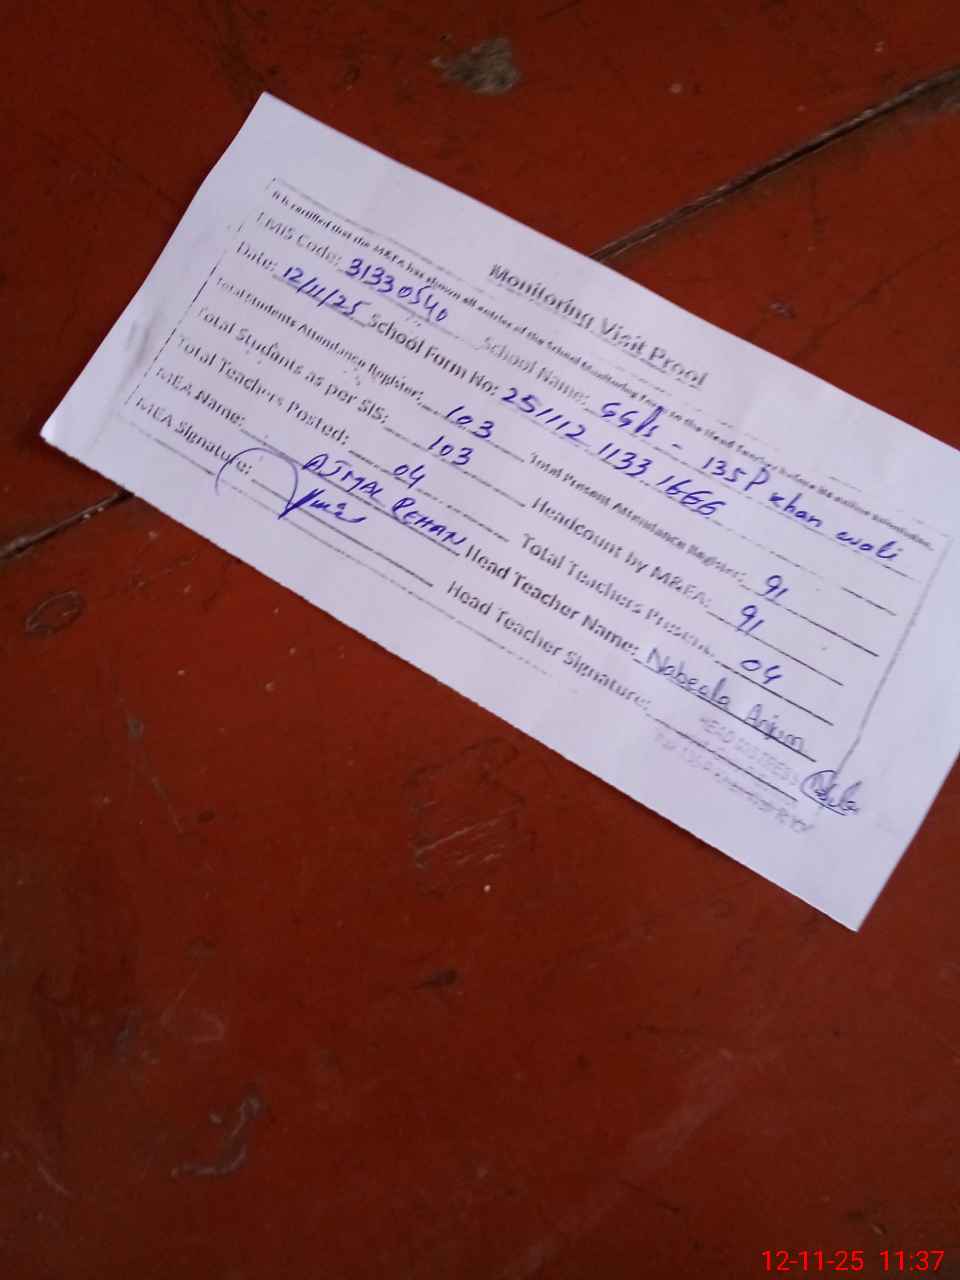 Monitoring Visit Proof
It is certified that the M&EA has shown all entries of the School Monitoring Form to the Head Teacher before its online submission.
EMIS Code: 31330540 School Name: GGPS - 135P Khan wali
Date: 12/11/25 School Form No: 251112 1133 1666
Total Students Attendance Register: 103 Total Present Attendance Register: 91
Total Students as per SIS: 103 Headcount by M&EA: 91
Total Teachers Posted: 04 Total Teachers Present: 04
MEA Name: AJMAL REHAN Head Teacher Name: Nabeela Anjum
MEA Signature: Head Teacher Signature:
HEAD MISTRESS
12-11-25 11:37